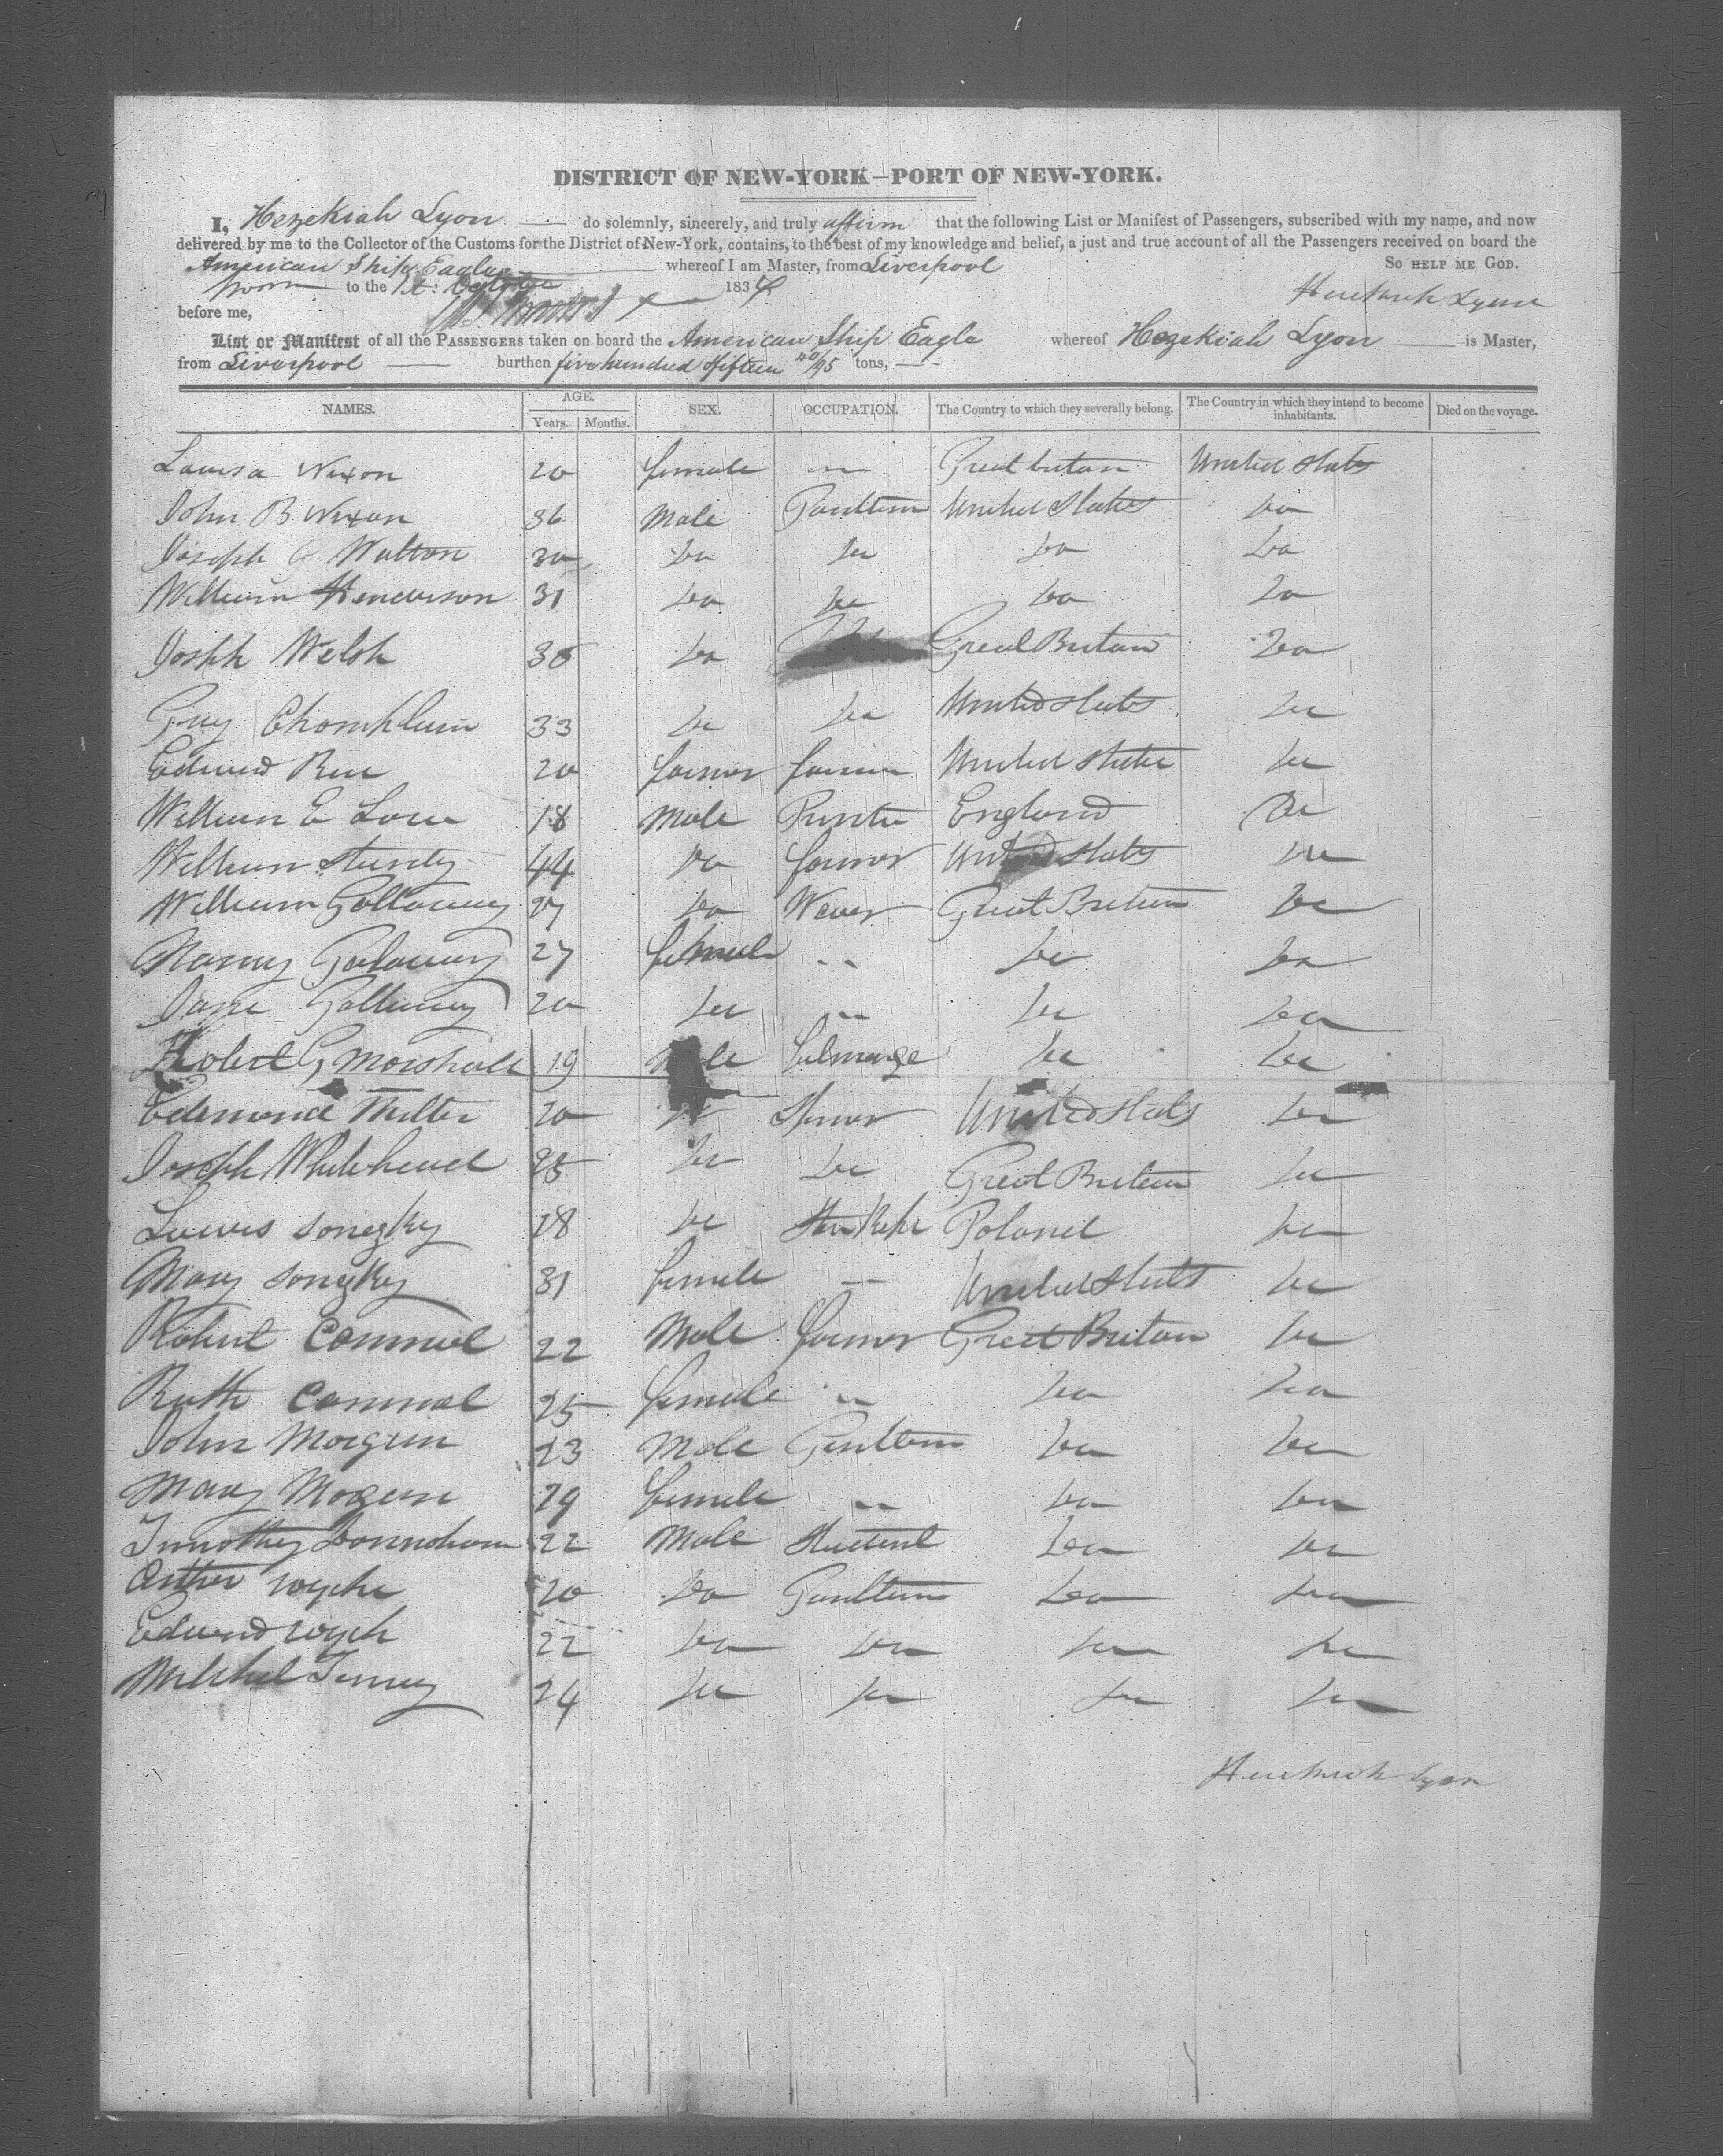 DISTRICT OF NEW-YORK—PORT OF NEW-YORK.
I, Hezekiah Lyon do solemnly, sincerely, and truly affirm that the following List or Manifest of Passengers, subscribed with my name, and now
delivered by me to the Collector of the Customs for the District of New-York, contains, to the best of my knowledge and belief, a just and true account of all the Passengers received on board the
American Ship Eagle whereof I am Master, from Liverpool So HELP ME GOD.
Sworn to the 1st October 1834
Hezekiah Lyon
before me,
List or Manifest of all the PASSENGERS taken on board the American Ship Eagle whereof Hezekiah Lyon is Master,
from Liverpool burthen five hundred & fifteen 40/95 tons,
NAMES. AGE. Years. Months. SEX. OCCUPATION. The Country to which they severally belong. The Country in which they intend to become inhabitants. Died on the voyage.
Louisa Nixon 20 female — Great britain United States
John B Nixon 36 Male Gentlem United States Do
Joseph Walton 30 Do Do Do Do
William Henderson 31 Do Do Do Do
Joseph Welsh 35 Do Great Britain Do
Guy Champlain 33 Do Do United States Do
Edward 20 farmer farmer United States Do
William E 18 Male Printer England Do
William Sturdy 44 Do farmer United States Do
William Gallaway 27 Do Wever Great Britain Do
Nancy Galaway 27 female -- Do Do
Jane Gallaway 20 Do -- Do Do
Robert G Marshall 19 Male Do Do
Edemond Miller 20 Do United States Do
Joseph Whitehead 25 Do Do Great Britain Do
Lewis Songsky 28 Do Poland Do
Mary Songsky 31 female -- United States Do
Robert Cammel 22 Male farmer Great Britain Do
Ruth Cammel 25 female -- Do Do
John Morgan 23 Male Gentlem Do Do
Mary Mogan 29 female -- Do Do
Timothy Donnoham 22 Male Student Do Do
Arther wyche 20 Do Gentlem Do Do
Edward wych 22 Do Do Do Do
24 Do Do Do Do
Hezekiah Lyon